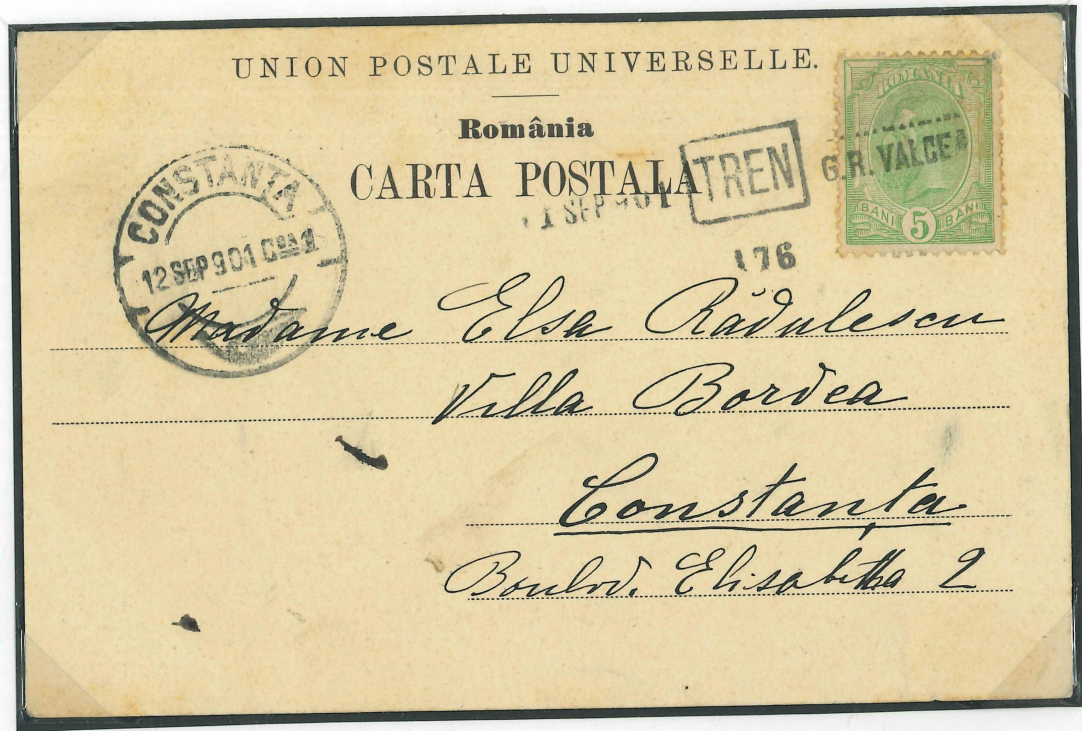 UNION POSTALE UNIVERSELLE.
România
CARTA POSTALA
ROMANIA
BANI 5 BANI
G.R. VALCEA
TREN
11 SEP 901
176
CONSTANȚA
12 SEP 901 Cᴰᴿᴬ 1
Madame Elsa Rădulescu
Villa Bordea
Constanța
Boulvd. Elisabetha 2